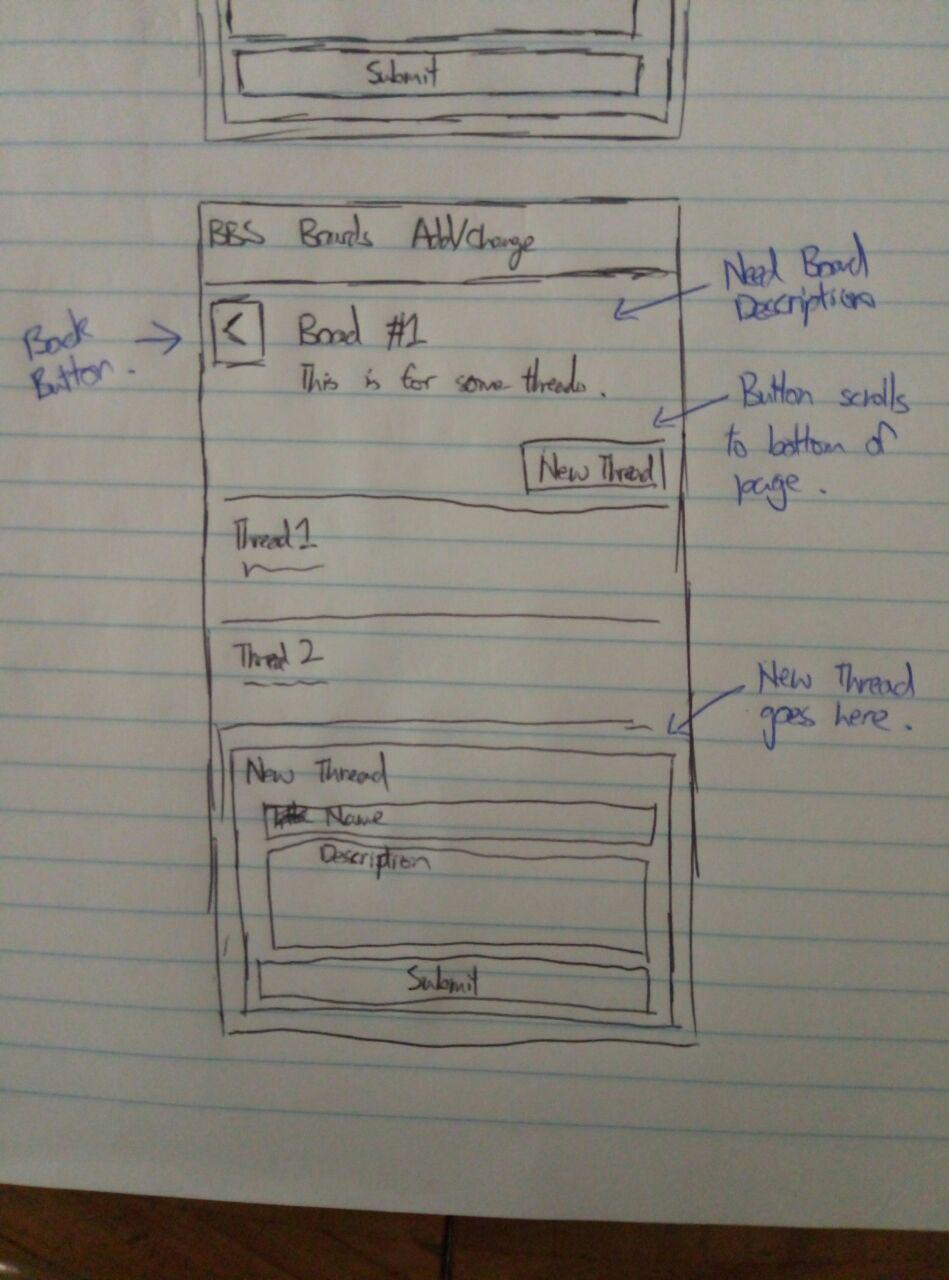 Submit
BBS Boards Add/Change
Need Board
Description
Back
Button.
<
Board #1
This is for some threads.
Button scrolls
to bottom of
page.
New Thread
Thread 1
Thread 2
New Thread
goes here.
New Thread
Name
Description
Submit